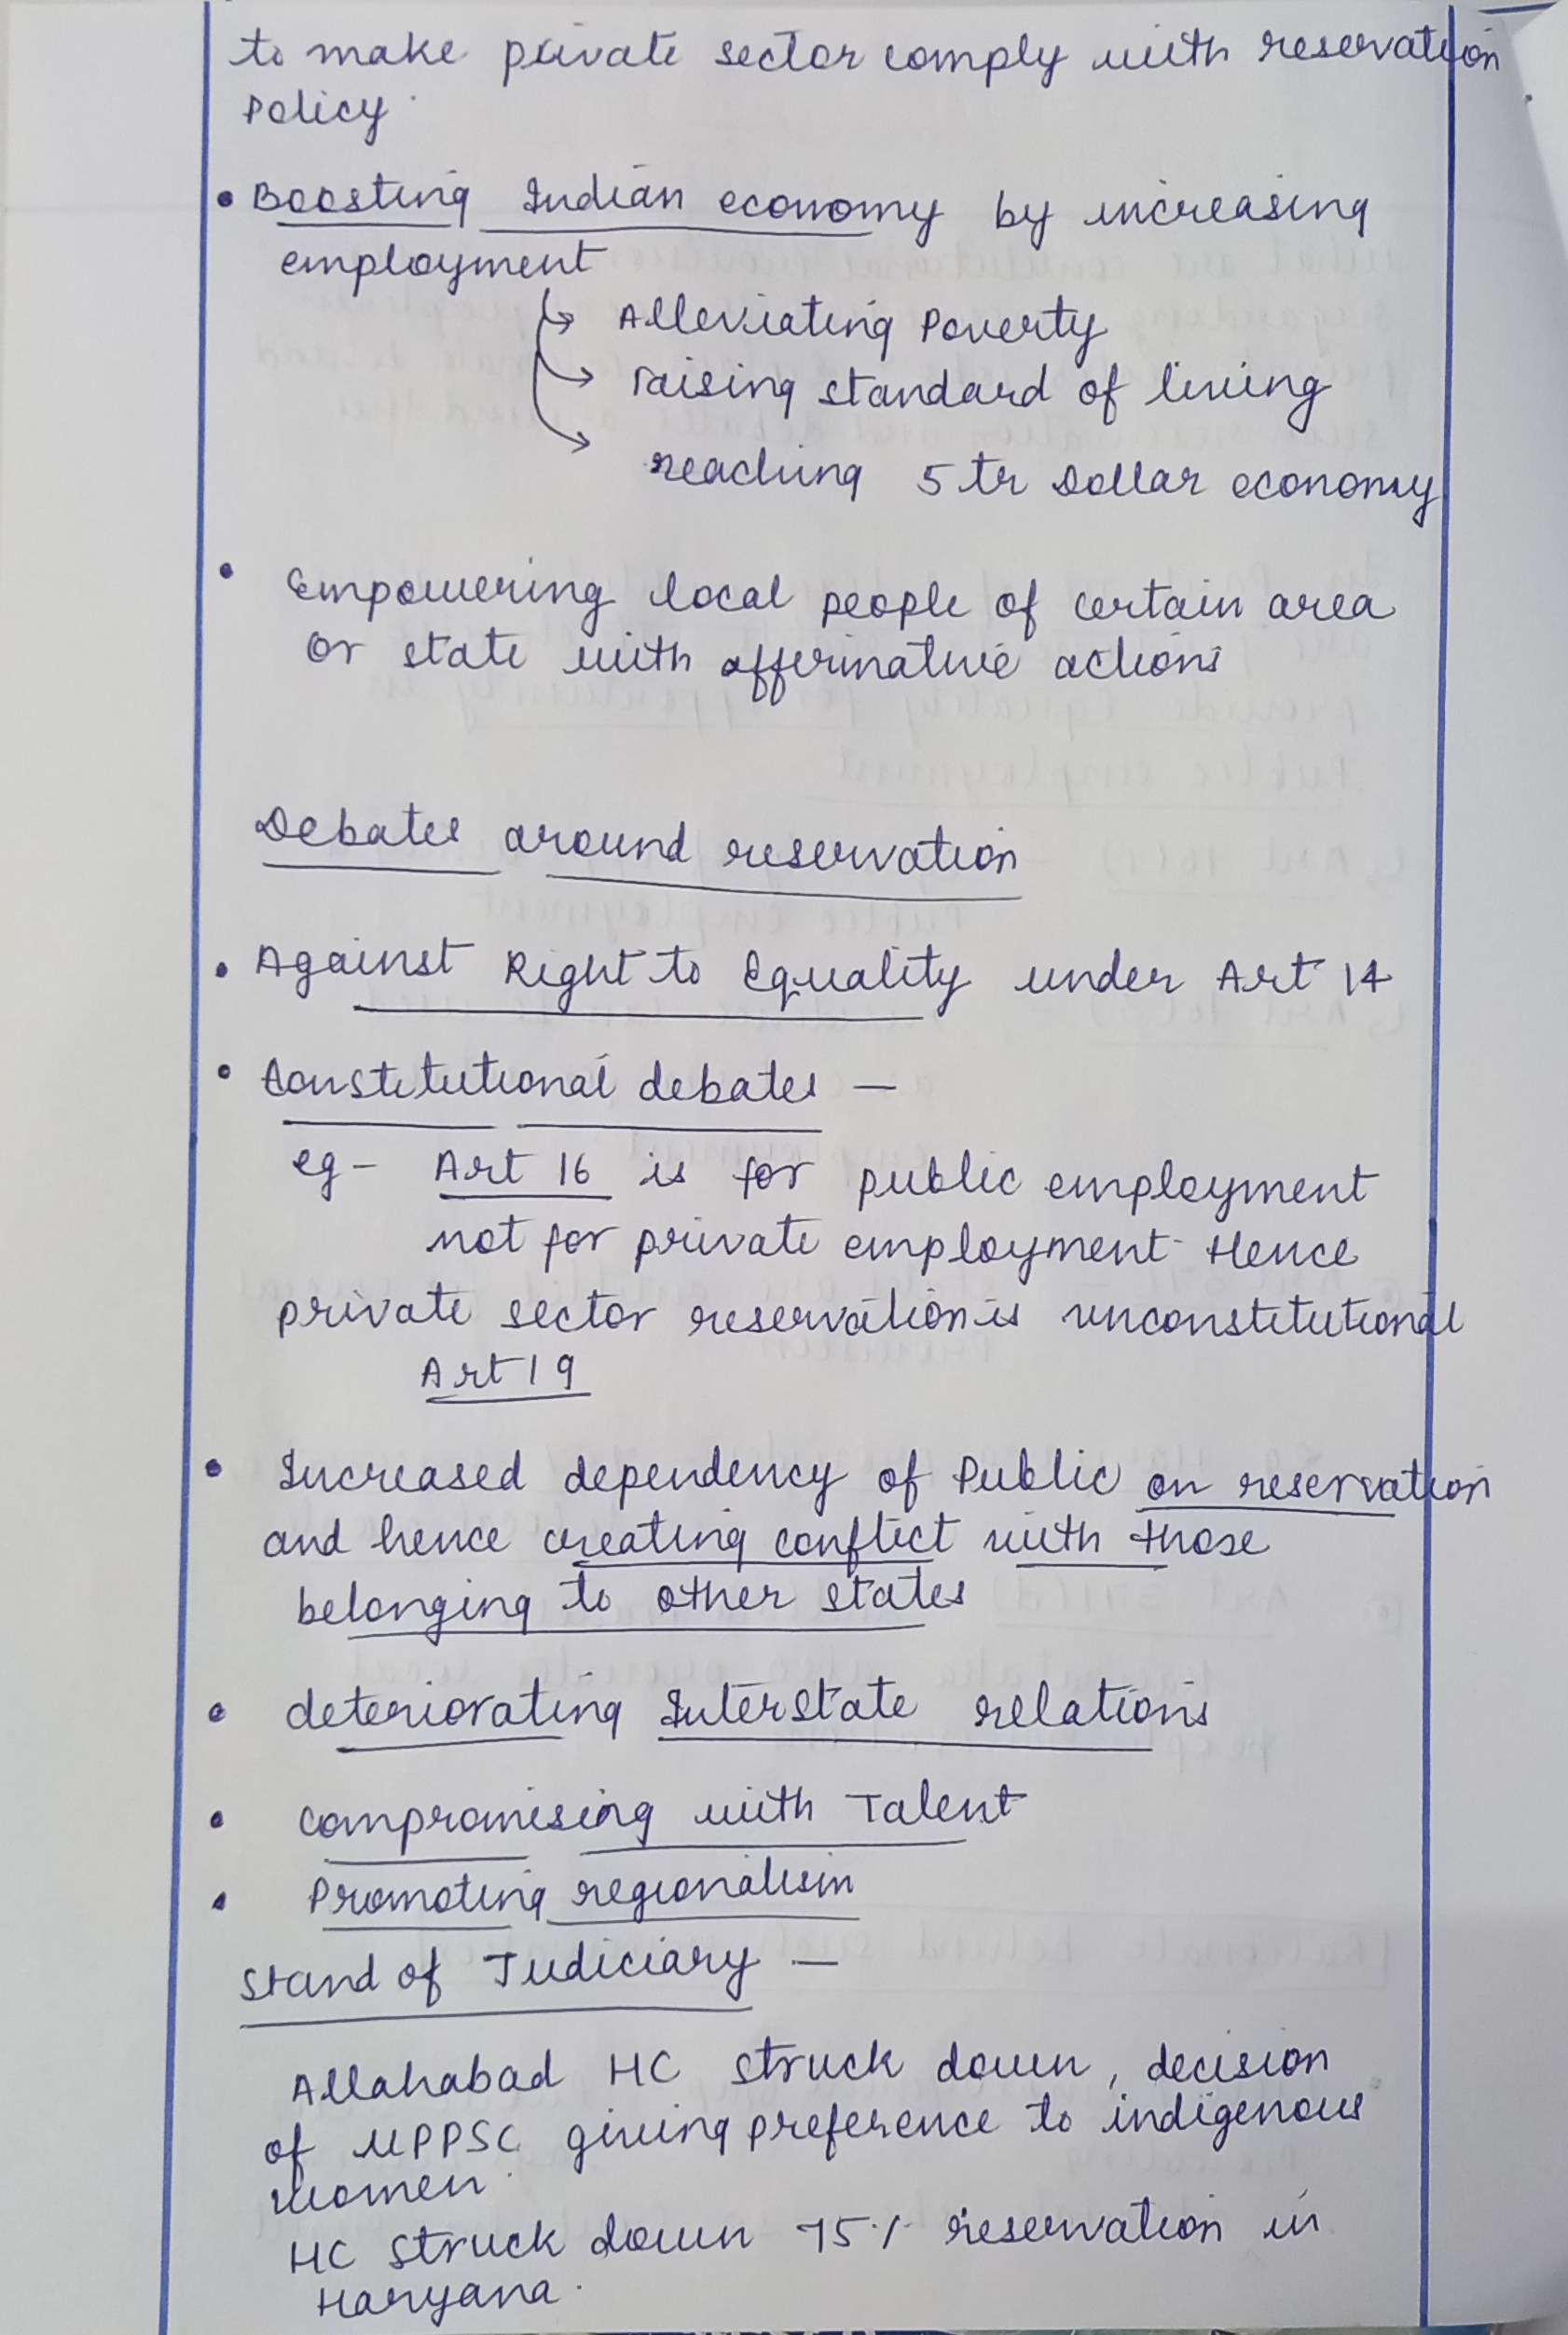 to make private sector comply with reservation
policy.
• Boosting Indian economy by increasing
employment
↳ Alleviating Poverty
→ raising standard of living
→ reaching 5 tr Dollar economy
• Empowering local people of certain area
or state with affirmative actions
Debates around reservation
• Against Right to Equality under Art 14
• Constitutional debates —
eg - Art 16 is for public employment
not for private employment. Hence
private sector reservation is unconstitutional
Art 19
• Increased dependency of Public on reservation
and hence creating conflict with those
belonging to other states
• deteriorating Interstate relations
• compromising with Talent
• Promoting regionalism
Stand of Judiciary —
Allahabad HC struck down, decision
of UPPSC giving preference to indigenous
women.
HC struck down 75% reservation in
Haryana.